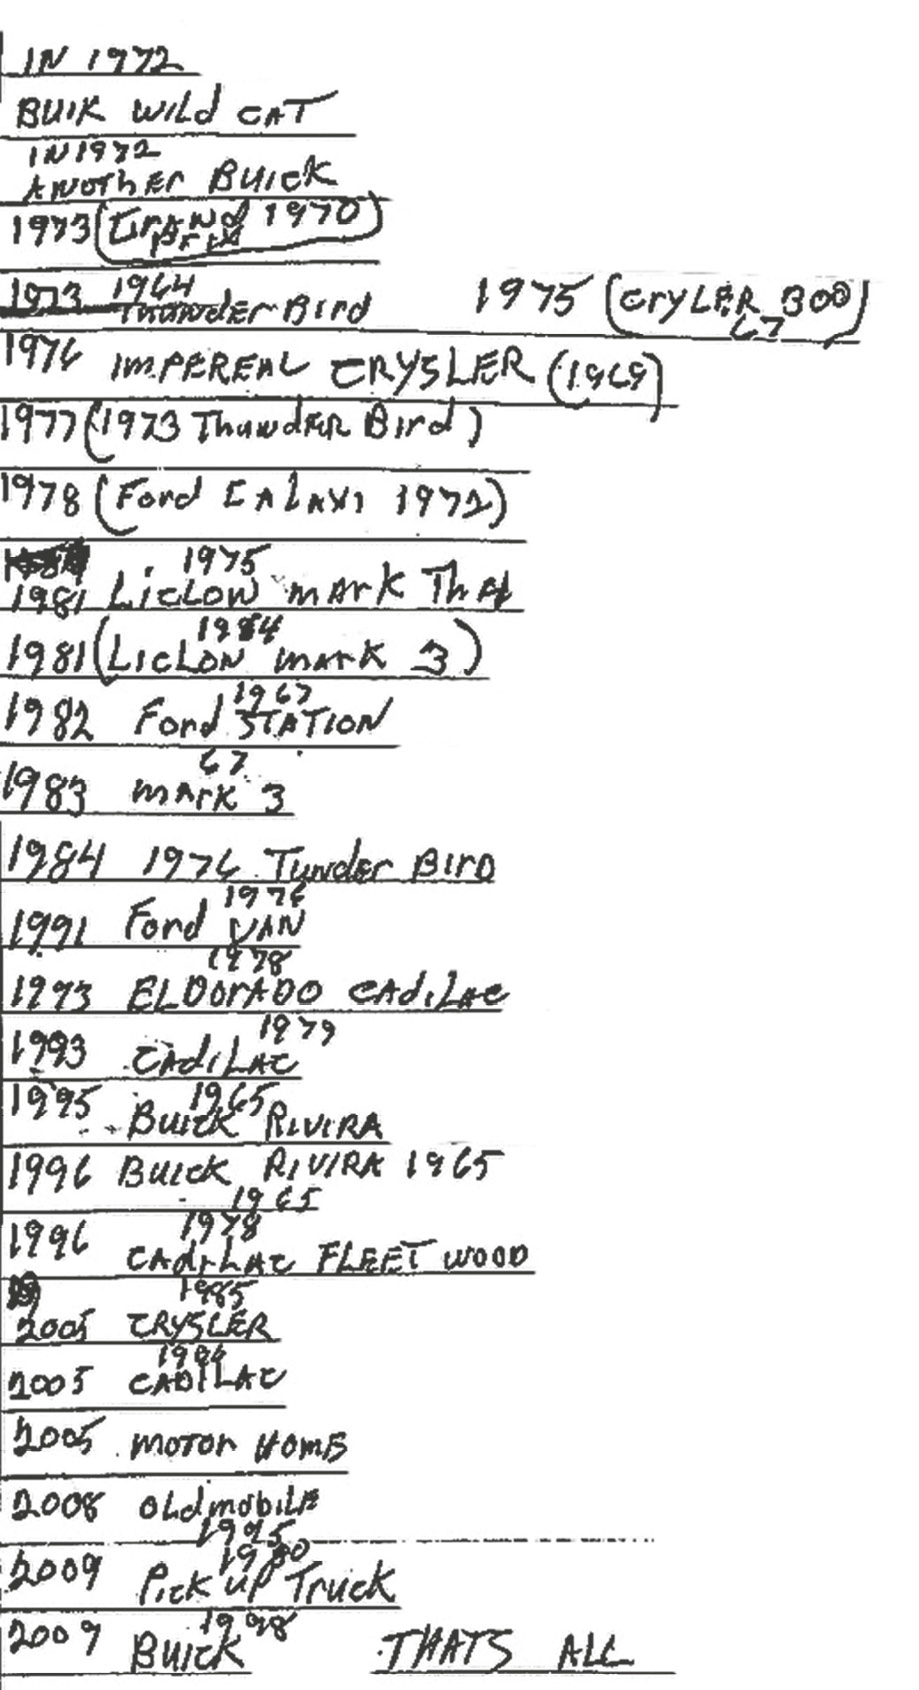 IN 1972
BUIK WILD CAT
IN 1972
ANOTHER BUICK
1973 (GRAND 1970)
PRIX
1964
1973 THUNDER BIRD 1975 (CRYLER 300)
67
1976 IMPEREAL CRYSLER (1969)
1977 (1973 THUNDER BIRD)
1978 (FORD GALAXI 1972)
1975
1981 LICLON MARK
1981 (LICLON MARK 3)
1967
1982 FORD STATION
67
1983 MARK 3
1984 1976 TUNDER BIRD
1976
1991 FORD VAN
1978
1993 ELDORADO CADILAC
1979
1993 CADILAC
1965
1995 BUICK RIVIRA
1996 BUICK RIVIRA 1965
1965
1978
1996 CADILAC FLEET WOOD
1985
2005 CRYSLER
2005 CADILAC
2005 MOTOR HOME
2008 OLDMOBILE
1995
1980
2009 PICK UP TRUCK
1998
2009 BUICK THATS ALL